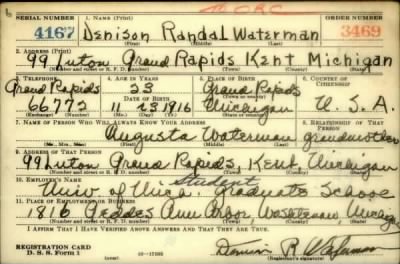 To ORC
SERIAL NUMBER 1. NAME (Print) ORDER NUMBER
4167 Denison Randal Waterman 3469
(First) (Middle) (Last)
2. ADDRESS (Print)
99 Luton Grand Rapids Kent Michigan
(Number and street or R. F. D. number) (Town) (County) (State)
3. TELEPHONE 4. AGE IN YEARS 5. PLACE OF BIRTH 6. COUNTRY OF CITIZENSHIP
Grand Rapids 23 Grand Rapids
DATE OF BIRTH
66772 11 23 1916 Michigan U. S. A.
7. NAME OF PERSON WHO WILL ALWAYS KNOW YOUR ADDRESS 8. RELATIONSHIP OF THAT PERSON
Augusta Waterman grandmother
(Mr., Mrs., Miss) (First) (Middle) (Last)
9. ADDRESS OF THAT PERSON
99 Luton Grand Rapids, Kent, Michigan
(Number and street or R. F. D. number) (Town) (County) (State)
10. EMPLOYER'S NAME Student
Univ. of Mich. Graduate School
11. PLACE OF EMPLOYMENT OR BUSINESS
1816 Geddes Ann Arbor, Washtenaw, Michigan
(Number and street or R. F. D. number) (Town) (County) (State)
I AFFIRM THAT I HAVE VERIFIED ABOVE ANSWERS AND THAT THEY ARE TRUE.
REGISTRATION CARD
D. S. S. Form 1 Denison R. Waterman
(Registrant's signature)